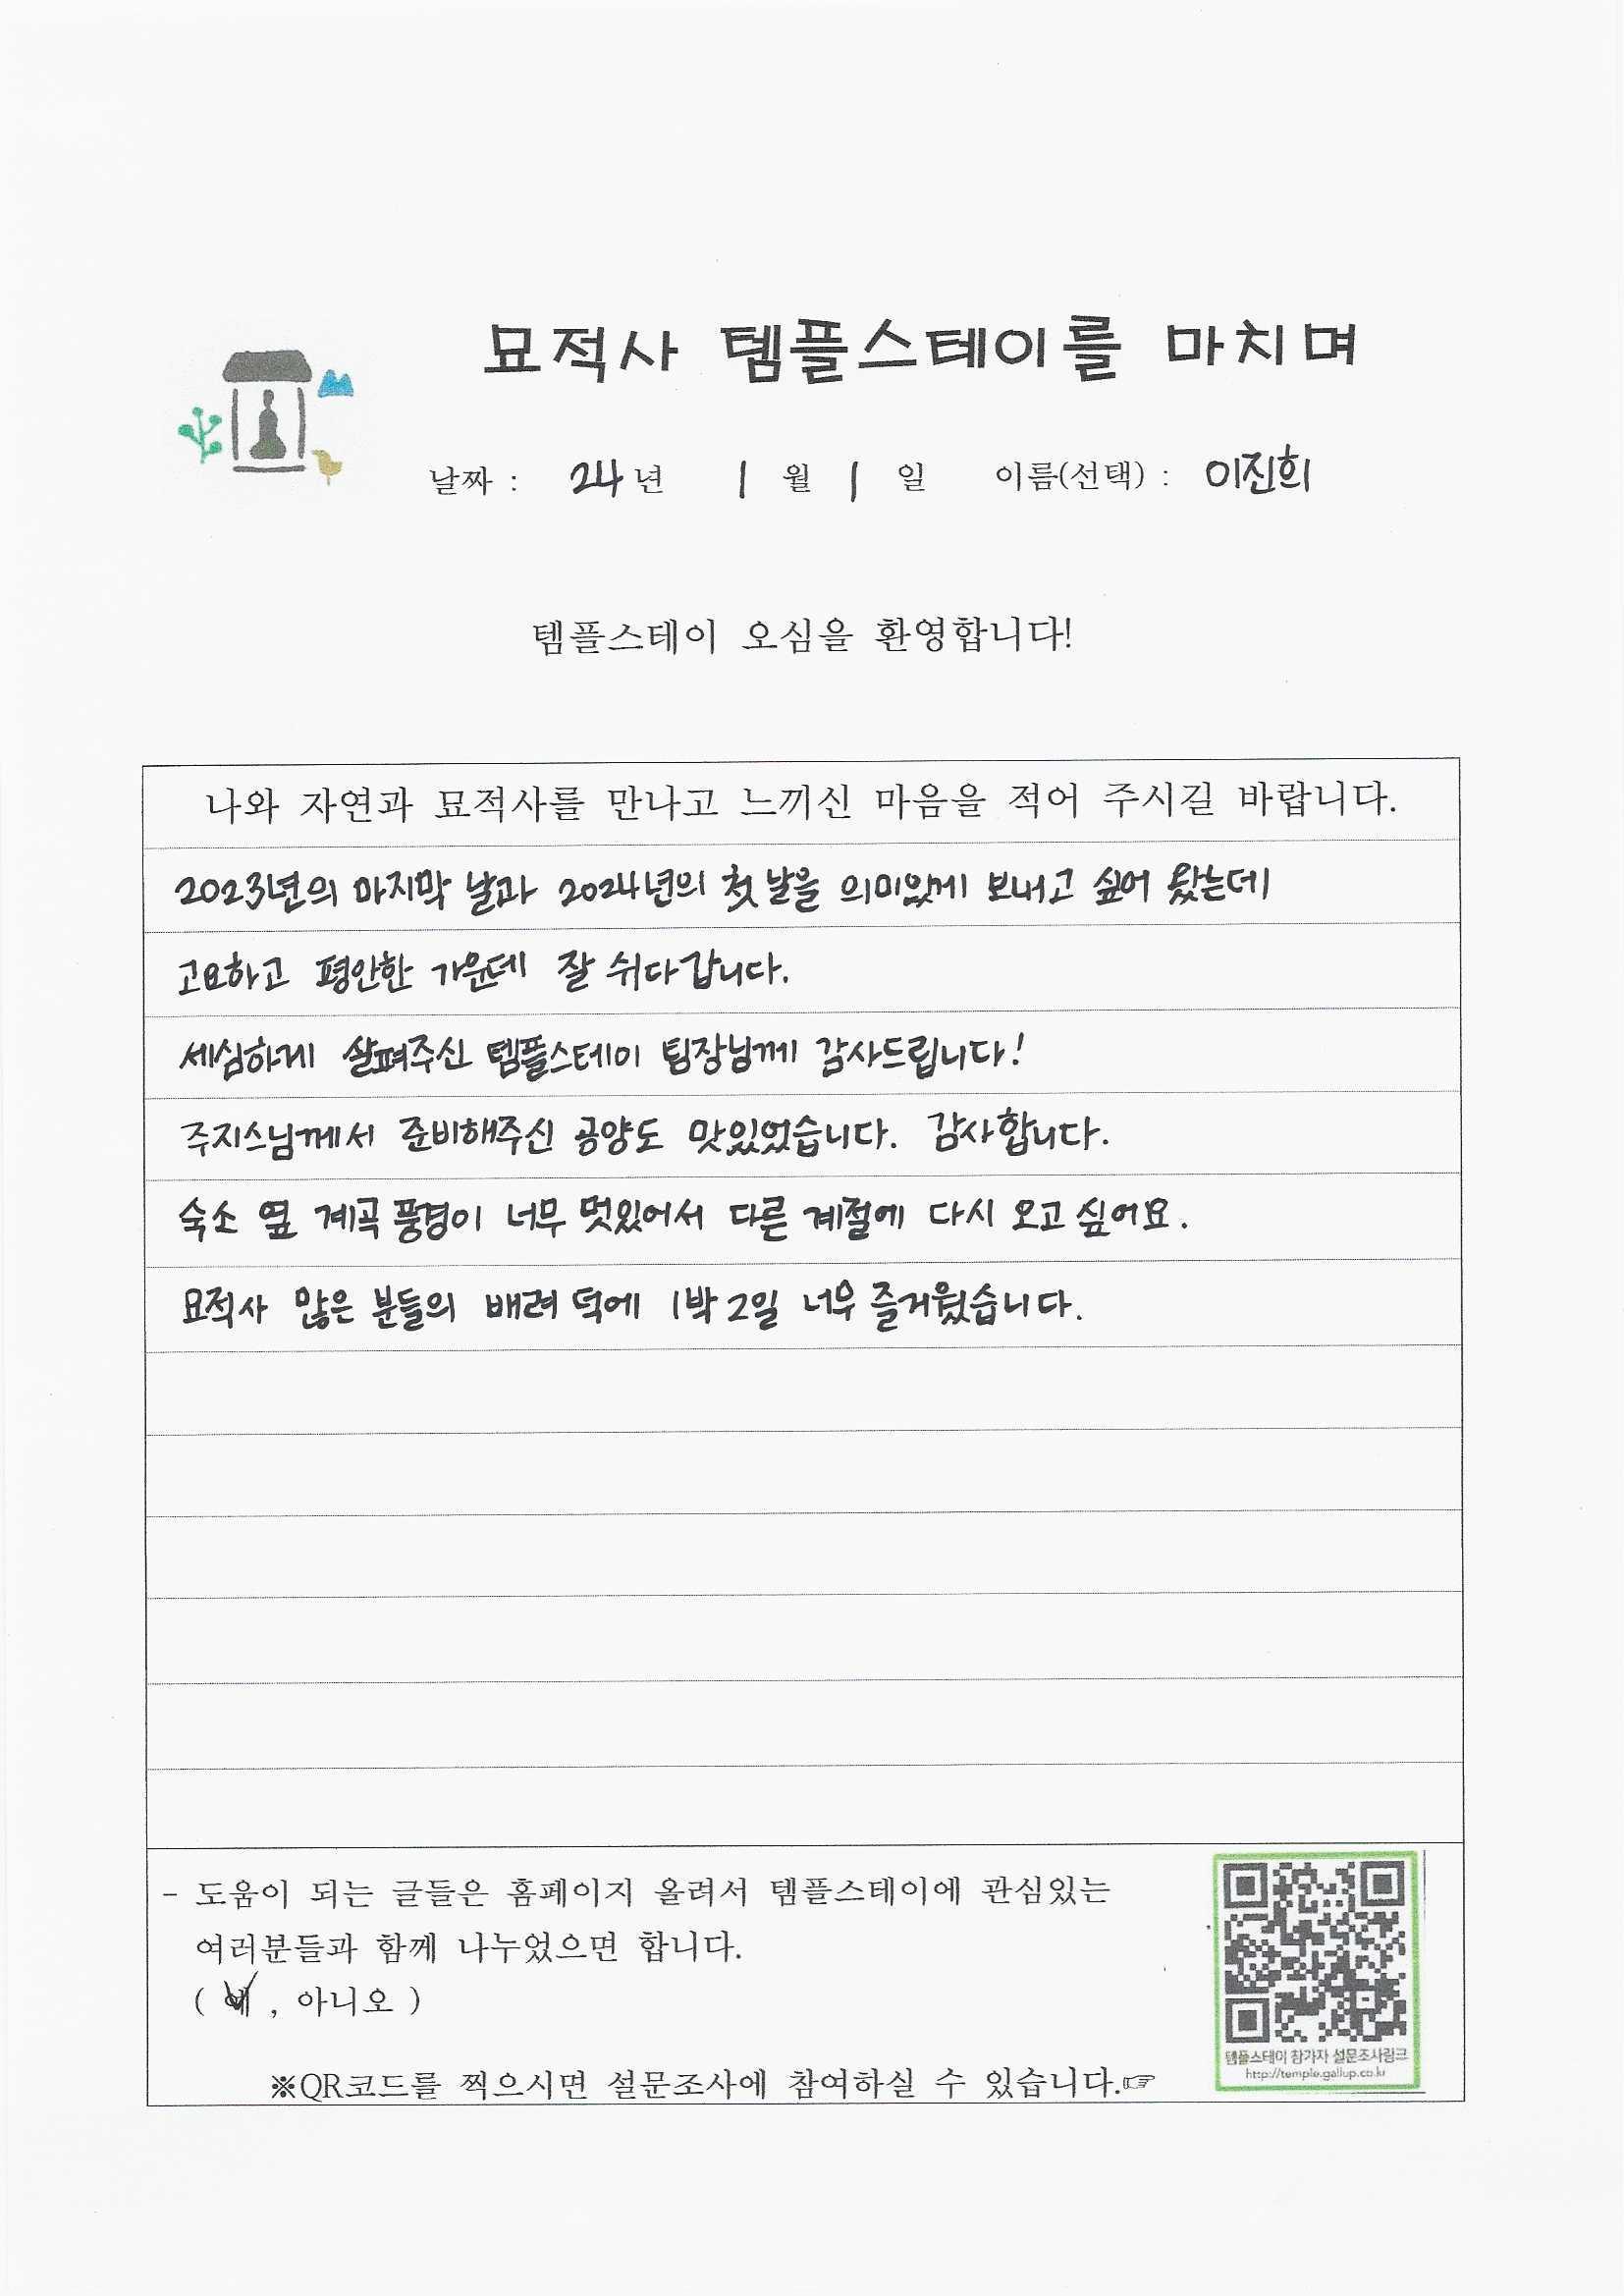 묘적사 템플스테이를 마치며
날짜 : 24년 1월 1일 이름(선택) : 이진희
템플스테이 오심을 환영합니다!
나와 자연과 묘적사를 만나고 느끼신 마음을 적어 주시길 바랍니다.
2023년의 마지막 날과 2024년의 첫 날을 의미있게 보내고 싶어 왔는데
고요하고 평안한 가운데 잘 쉬다 갑니다.
세심하게 살펴주신 템플스테이 팀장님께 감사드립니다!
주지스님께서 준비해주신 공양도 맛있었습니다. 감사합니다.
숙소 옆 계곡 풍경이 너무 멋있어서 다른 계절에 다시 오고 싶어요.
묘적사 많은 분들의 배려 덕에 1박 2일 너무 즐거웠습니다.
- 도움이 되는 글들은 홈페이지 올려서 템플스테이에 관심있는
여러분들과 함께 나누었으면 합니다.
( 예 , 아니오 )
※QR코드를 찍으시면 설문조사에 참여하실 수 있습니다.☞
템플스테이 참가자 설문조사링크
http://temple.gallup.co.kr